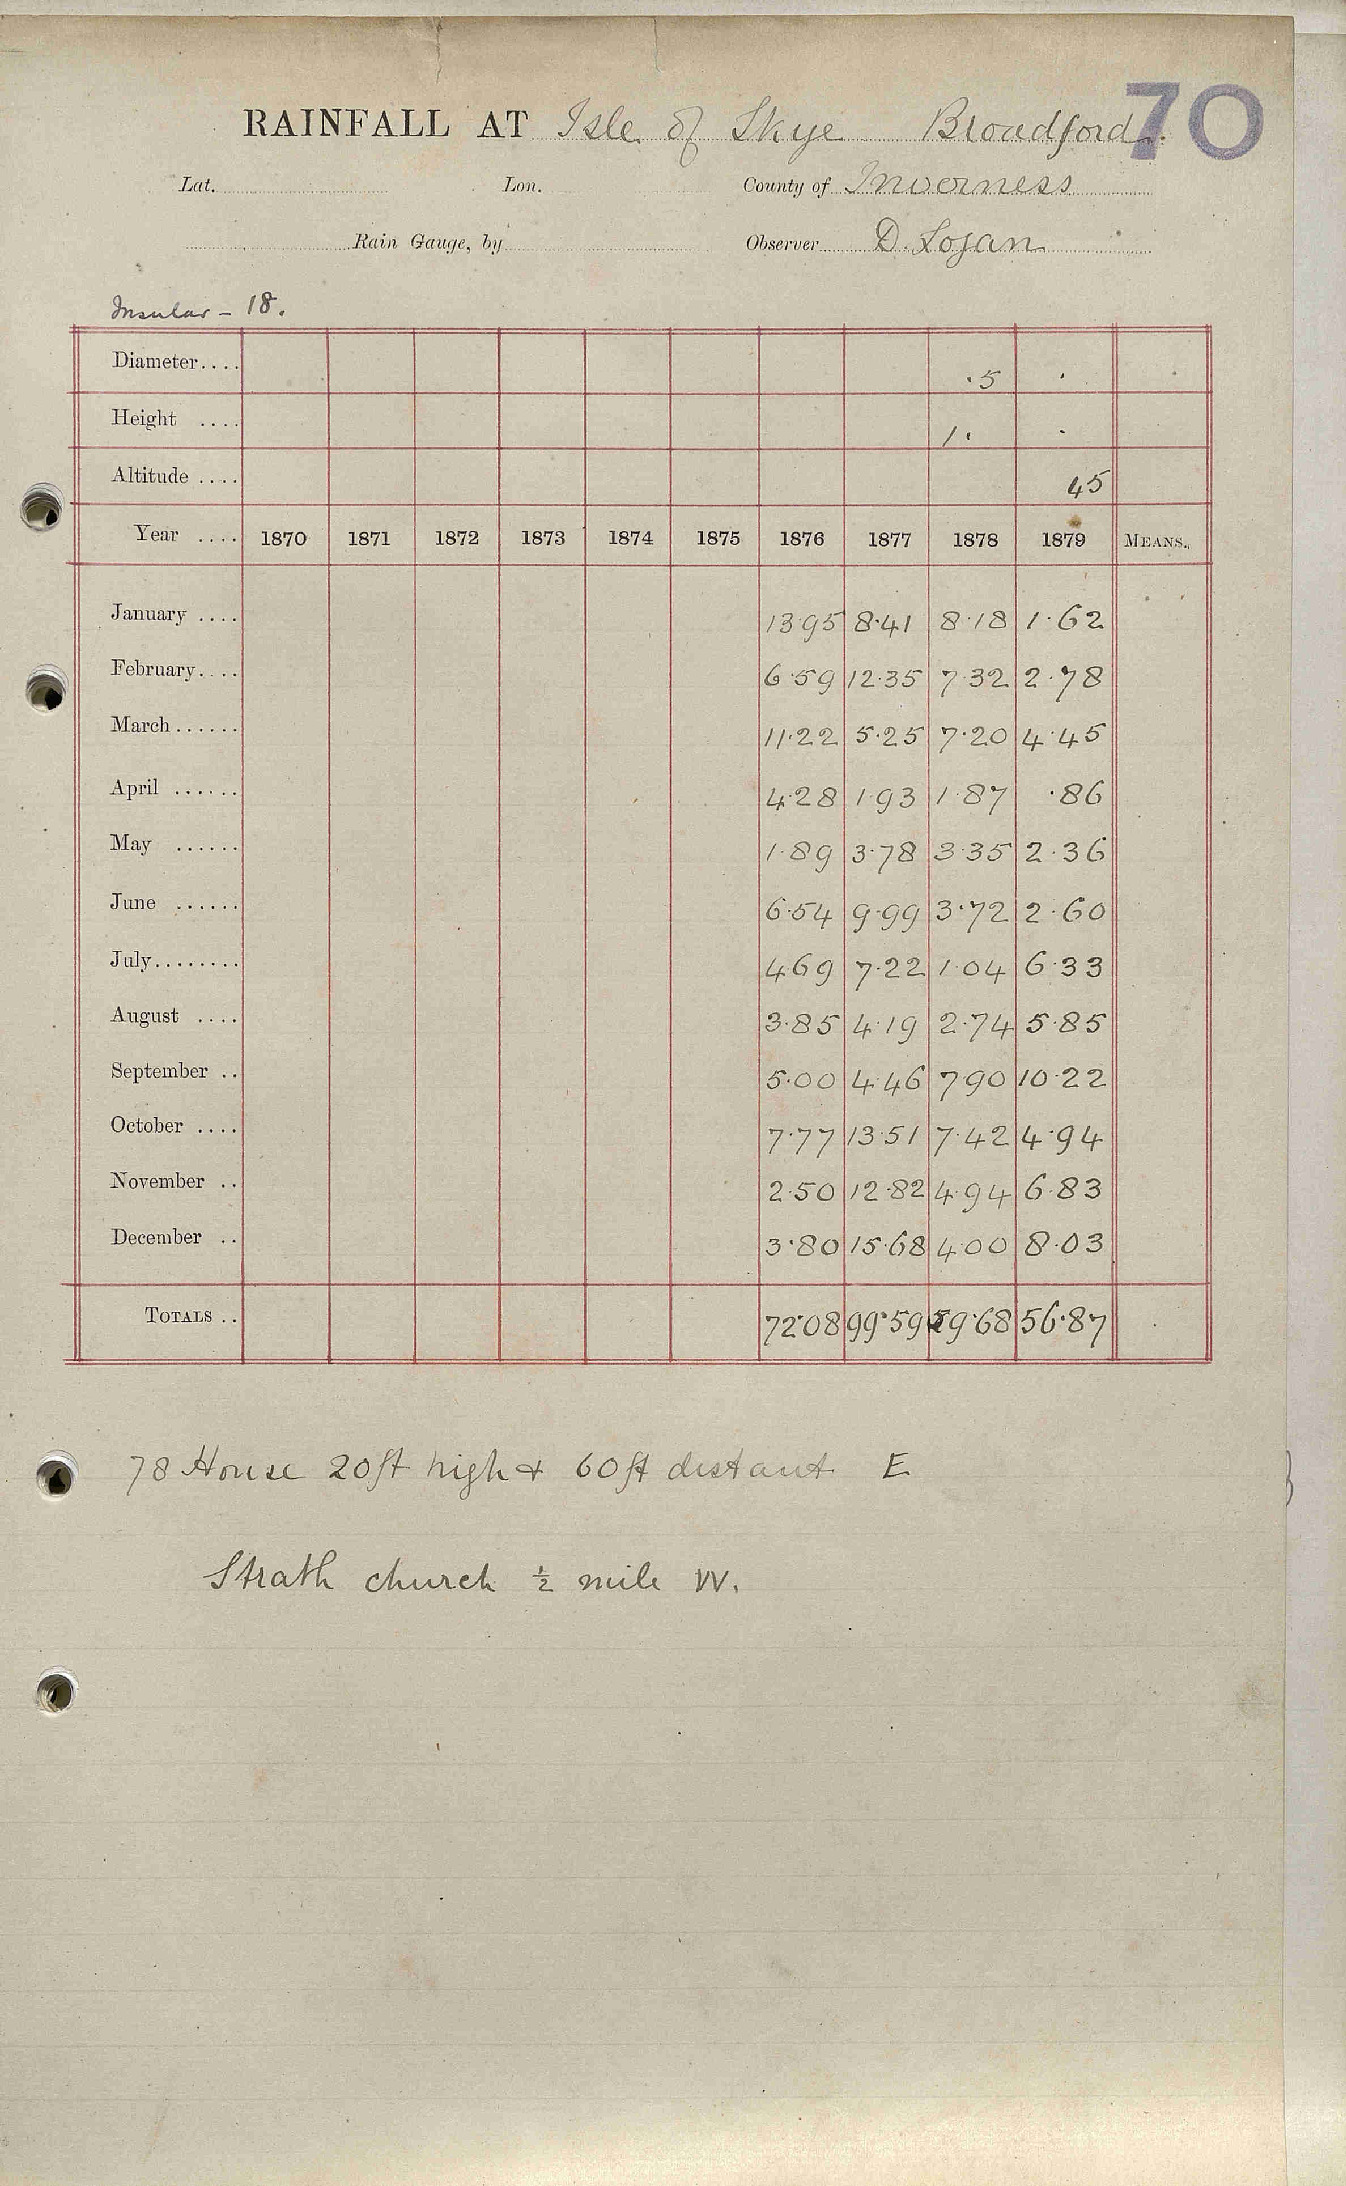 70
RAINFALL AT Isle of Skye Broadford.
Lat. Lon. County of Inverness
Rain Gauge, by Observer D. Logan
Insular – 18.
Diameter.... ·5 ·
Height .... 1· ·
Altitude .... 45
Year .... 1870 1871 1872 1873 1874 1875 1876 1877 1878 1879 MEANS.
January .... 13 95 8·41 8·18 1·62
February.... 6·59 12·35 7·32 2·78
March...... 11·22 5·25 7·20 4·45
April ...... 4·28 1·93 1·87 ·86
May ...... 1·89 3·78 3·35 2·36
June ...... 6·54 9·99 3·72 2·60
July........ 4·69 7·22 1·04 6·33
August .... 3·85 4·19 2·74 5·85
September .. 5·00 4·46 7·90 10·22
October .... 7·77 13·51 7·42 4·94
November .. 2·50 12·82 4·94 6·83
December .. 3·80 15·68 4·00 8·03
TOTALS .. 72·08 99·59 59·68 56·87
78 House 20ft high & 60ft distant E
Strath church ½ mile W.